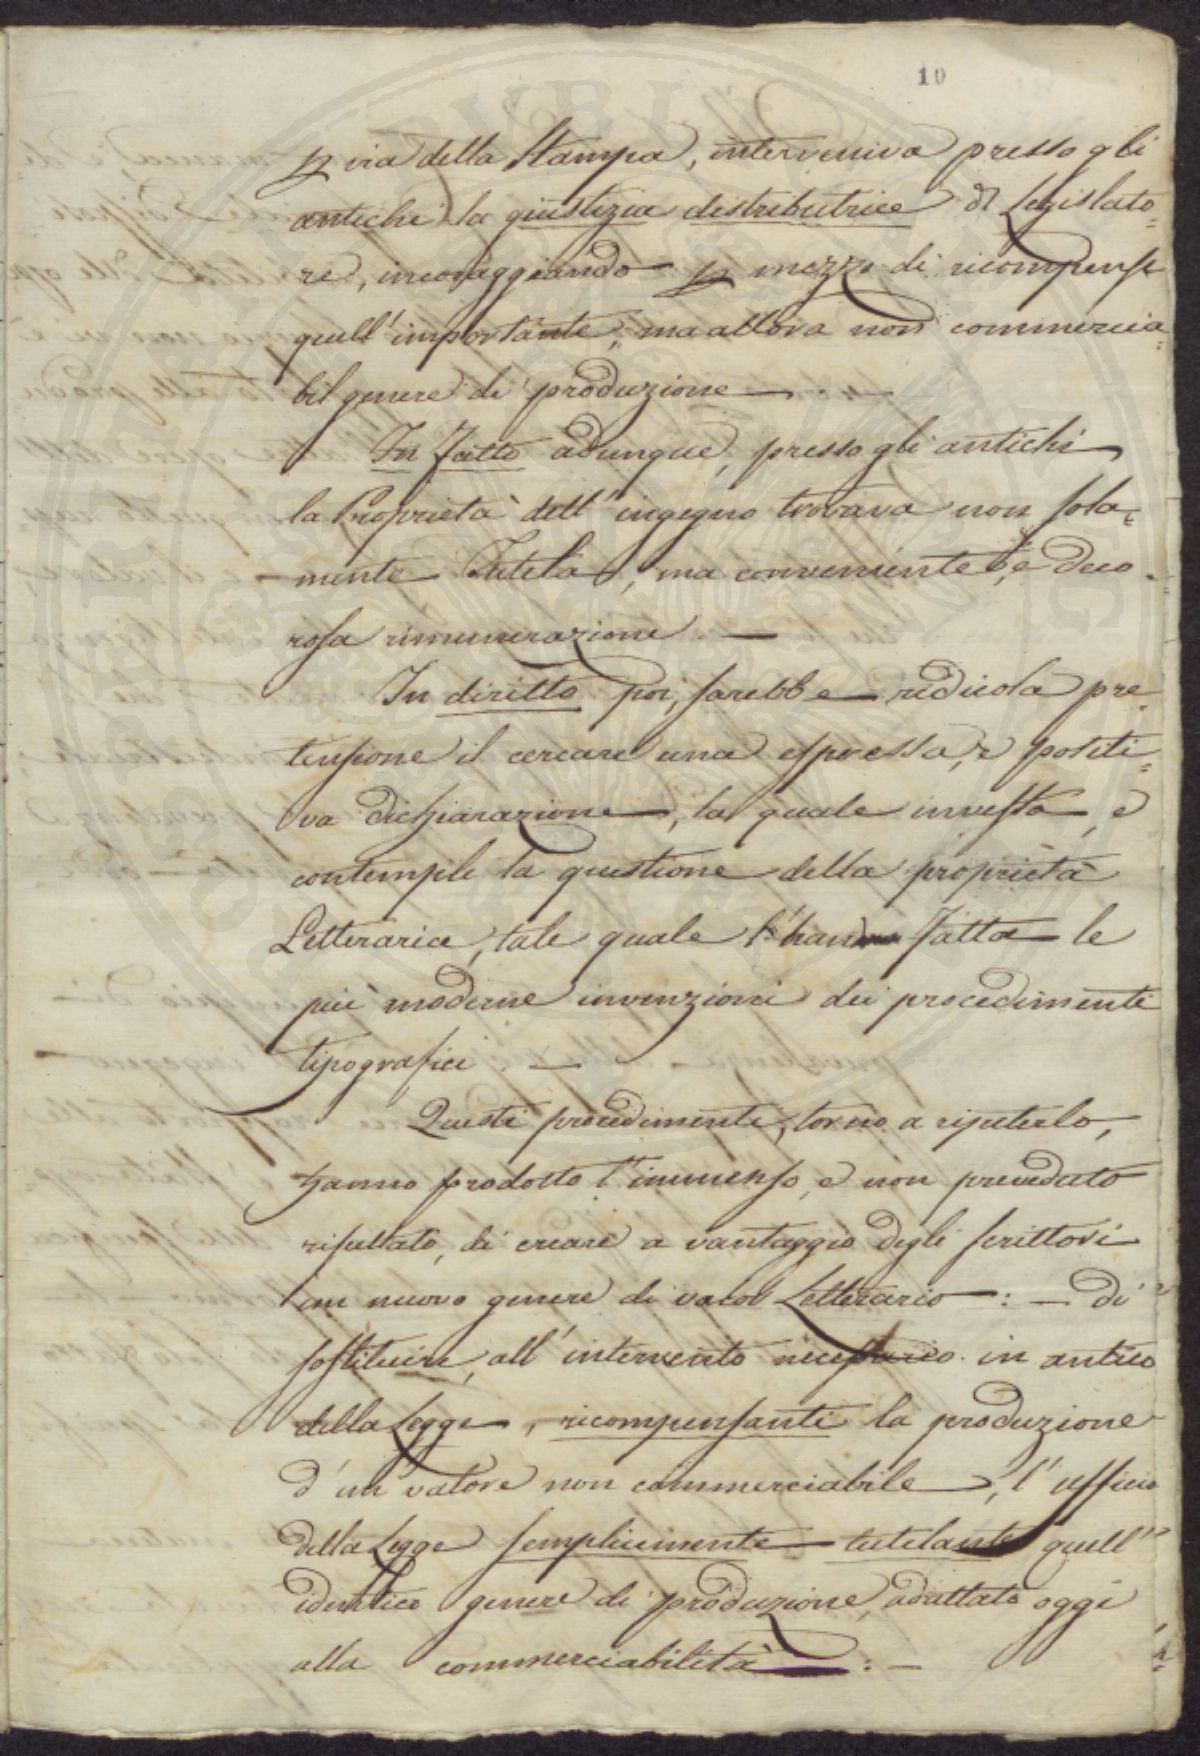 10
p via della Stampa, interveniva presso gli
antichi la giustizia distributrice di Legislato=
re, incoraggiando p mezzo di ricompense
quell' importante, ma allora non commercia=
bil genere di produzione —
In fatto adunque, presso gli antichi
la Proprietà dell' ingegno trovava non sola=
mente Tutela, ma conveniente, e deco=
rosa rimunerazione —
In diritto poi, sarebbe ridicola pre=
tensione il cercare una espressa, e positi=
va dichiarazione, la quale investa, e
contempli la questione della proprietà
Letteraria, tale quale l'hanno fatta le
più moderne invenzioni dei procedimenti
tipografici. —
Questi procedimenti, torno a ripeterlo,
hanno prodotto l'immenso, e non preveduto
risultato, di creare a vantaggio degli scrittori
un nuovo genere di valor Letterario: — Di
sostituire, all' intervento necessario in antico
della Legge, ricompensante la produzione
d'un valore non commerciabile, l'ufficio
della Legge semplicemente tutelante quell'
identico genere di produzione, adattato oggi
alla commerciabilità: —